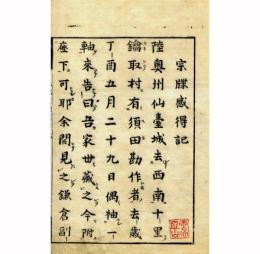 宗牒感得記
陸奥州仙臺城去西南十里
鑰取村有須田勘作者去歳
丁酉五月二十九日偶袖一
軸來告曰吾家世藏之今附
座下可耶余閲見之鎌倉副